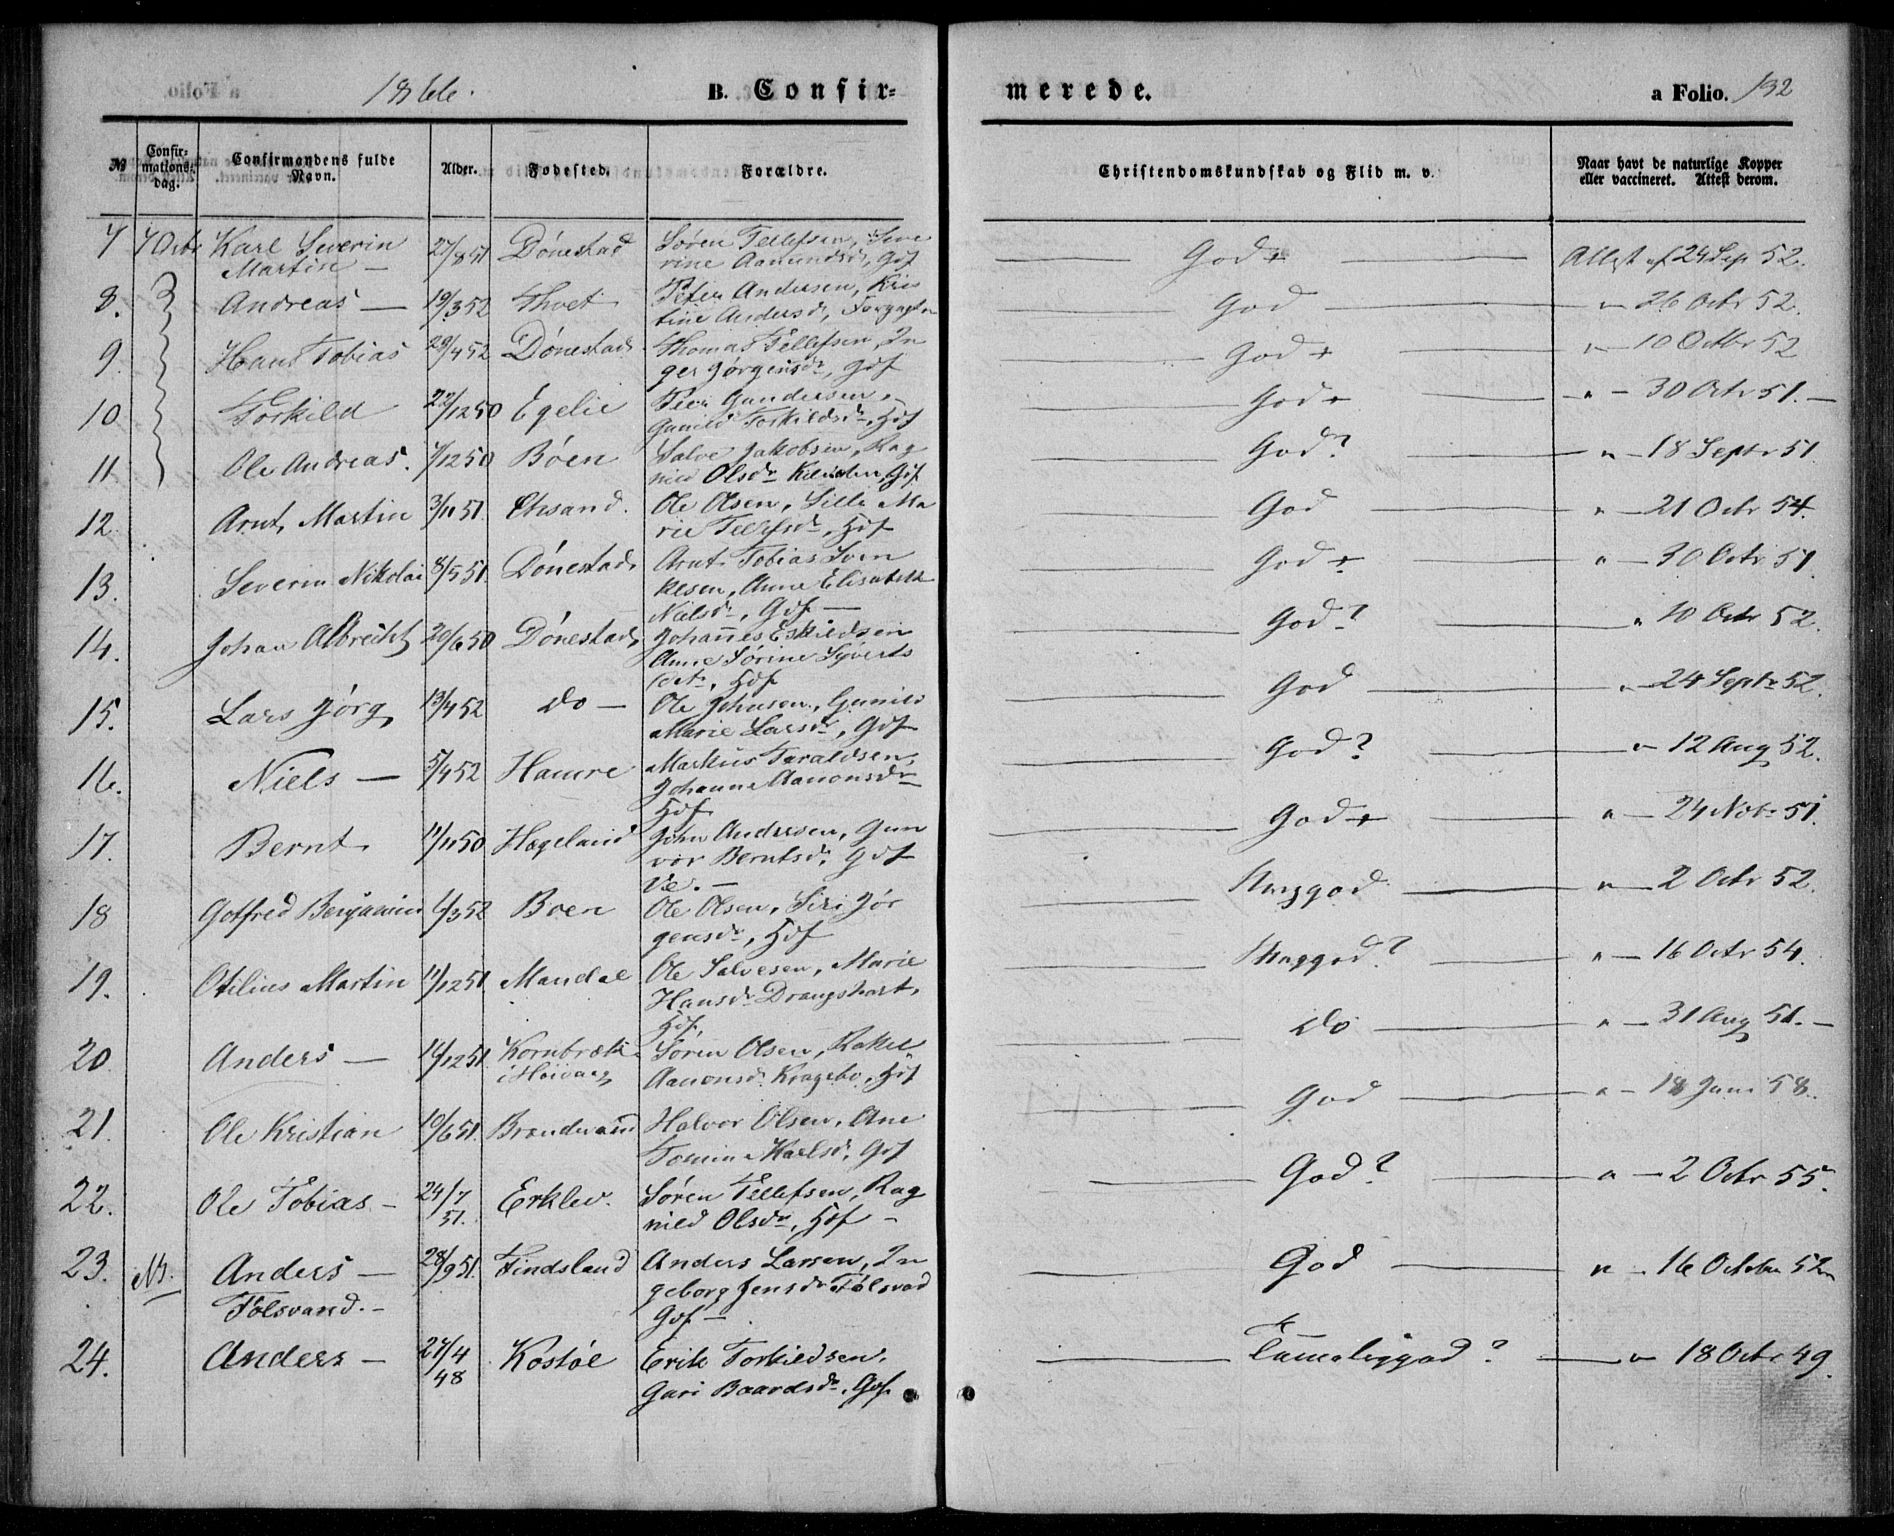 1866.
B. Confir-
merede.
a Folio. 132
№
Confir-
mations-
dag.
Confirmandens fulde
Navn.
Alder.
Fødested.
Forældre.
Christendomskundskab og Flid m. v.
Naar havt de naturlige Kopper
eller vaccineret. Attest derom.
7 7 Octbr Karl Severin 27/8 51 Dønestad Søren Tellefsen, Seve
Martin — rine Aanundsd, Gdf God + Attest af 24 Sep 52.
8. Andreas — 19/3 52 Peter Andersen, Kris
tine Andersd, God " 26 Octr 52.
9. Hans Tobias 29/4 52 Dønestad Thomas Tellefsen, In
ger Jørgensdr, Gdf God + " 10 Octbr 52
10 Torkild 22/12 50 Egelie Peer Gundersen,
Gunild Torkildsdr, Hdf God + " 30 Octr 51. —
11. Ole Andreas. 7/12 50 Bøen Salve Jakobsen, Rag
nild Olsdr Gdf God? " 18 Septr 51
12. Arnt Martin 3/11 51. Ole Olsen, Sille Ma
rie Tellefsdr, Hdf God " 21 Octr 54.
13. Severin Nikolai 8/5 51. Dønestad Arnt Tobias Sven
kesen, Anne Elisabeth
Nielsdr, Gdf — God + " 30 Octr 51.
14. Johan Albrecht 20/6 50 Dønestad Johannes Eskildsen
Anne Sørine Syverts
datr, Hdf God? " 10 Octr 52.
15. Lars Jørg 13/4 52 do — Ole Johnsen, Gunild
Marie Larsdr, Gdf God " 24 Septr 52.
16. Niels — 5/4 52 Hamre Markus Taraldsen,
Johanne Aanonsdr
Hdf God? " 12 Aug 52.
17. Bernt 11/11 50 Hægeland John Andersen, Gun
vor Berntsd. Gdf
Vie. — God + " 24 Novbr 51.
18 Gotfred Benjamin 6/3 52 Boen Ole Olsen, Siri Jør
gensdr, Hdf Meggod " 2 Octr 52.
19. Otilius Martin 11/12 51. Mandal Ole Salvesen, Marie
Hansdr Drangshart,
Hdf, Meggod? " 16 Octr 54.
20 Anders — 14/12 51. Kornbrække Søren Olsen, Rakel
i Høivaag Aanonsd. Kragebo, Hdf do " 31 Aug 51. —
21. Ole Kristian 10/6 51. Brændeland Halvor Olsen, Ane
Tomine Karlsd, Gdf God " 18 Juni 58.
22. Ole Tobias — 24/7 51. Erklev. Søren Tellefsen, Rag
nild Olsdr, Hdf — God? " 2 Octbr 55.
23. Nb. Anders — 28/9 51. Findsland Anders Larsen, In
Følsvand. — geborg Jensdr Følsvad
Gdf — God " 16 October 52
24. Anders — 27/4 48 Kostøl Erik Torkildsen,
Gari Baardsdr, Gdf. Tæmeliggod? " 18 Octr 49.